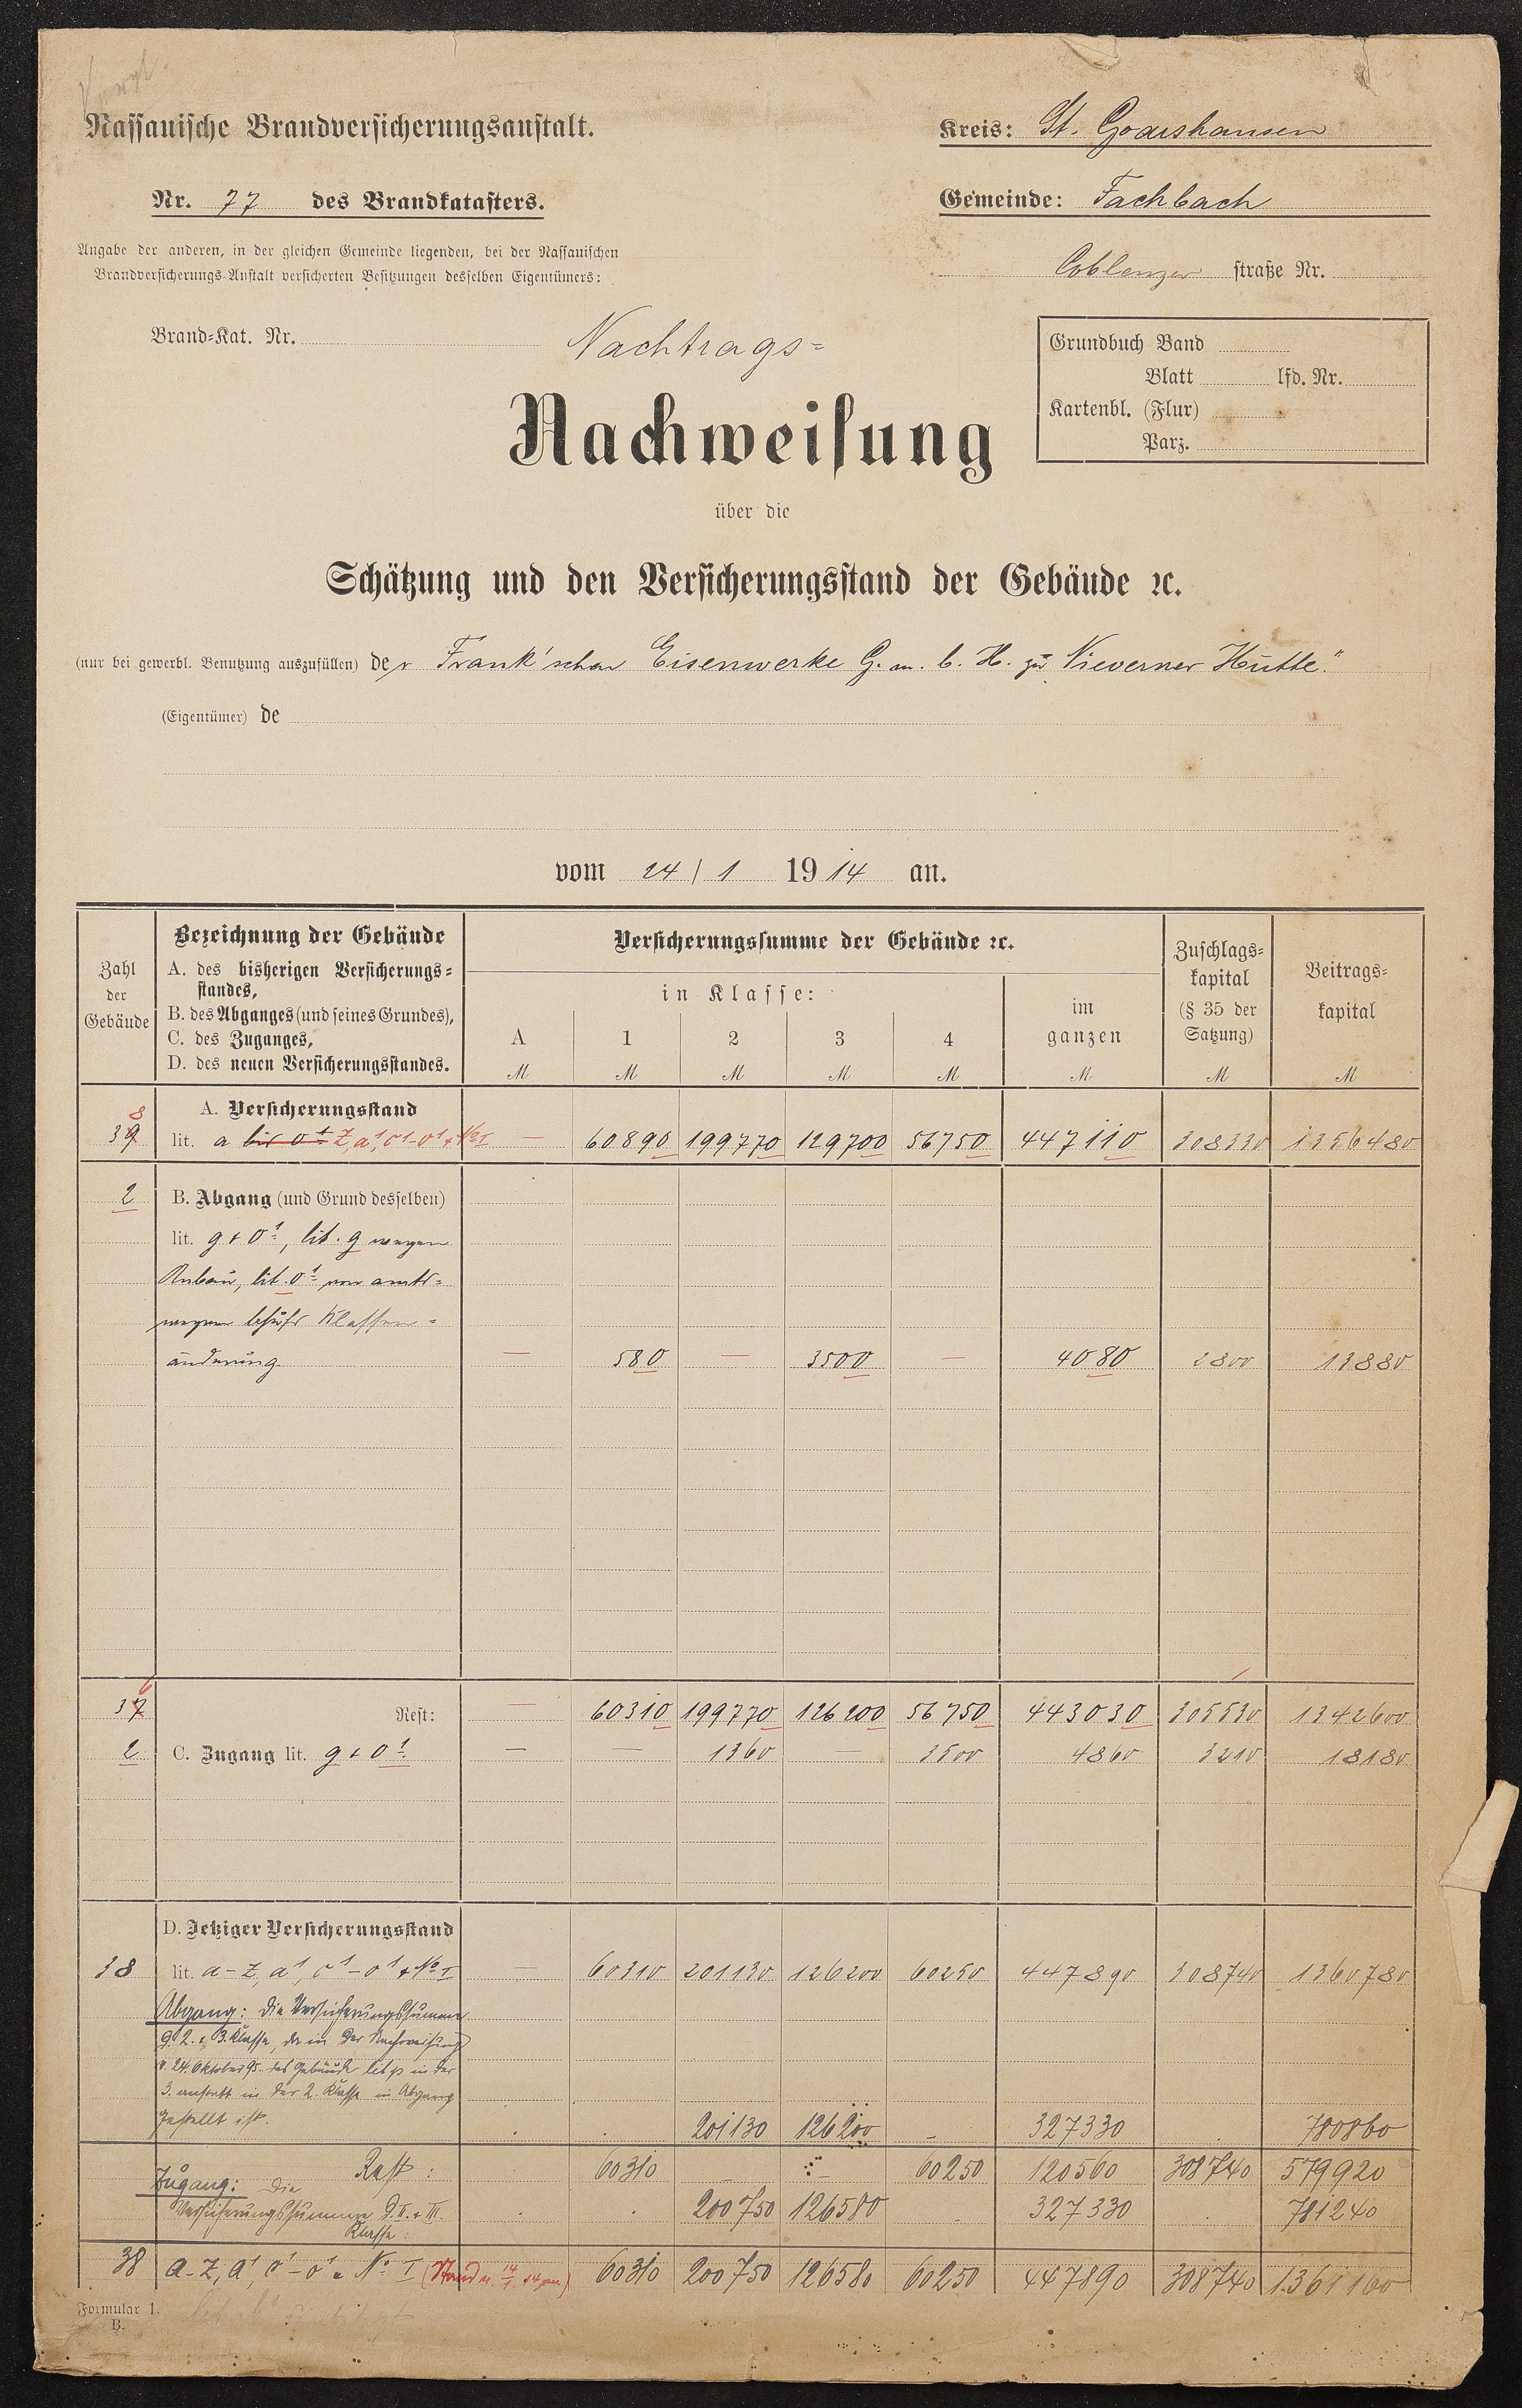 Nassauische Brandversicherungsanstalt.
Kreis: St. Goarshausen
Nr. 77 des Brandkatasters.
Gemeinde: Fachbach
Angabe der anderen, in der gleichen Gemeinde liegenden, bei der Nassauischen
Brandversicherungs-Anstalt versicherten Besitzungen desselben Eigentümers:
Coblenzer straße Nr.
Brand-Kat. Nr.
Nachtrags-
Grundbuch Band
Blatt lfd. Nr.
Kartenbl. (Flur)
Parz.
Nachweisung
über die
Schätzung und den Versicherungsstand der Gebäude ꝛc.
(nur bei gewerbl. Benutzung auszufüllen) der Frank'schen Eisenwerke G. m. b. H. zu „Nieverner Hütte."
(Eigentümer) de
vom 24/1 1914 an.
Zahl der Gebäude
Bezeichnung der Gebäude
A. des bisherigen Versicherungs-
standes,
B. des Abganges (und seines Grundes),
C. des Zuganges,
D. des neuen Versicherungsstandes.
Versicherungssumme der Gebäude ꝛc.
in Klasse:
A 1 2 3 4
im ganzen
Zuschlags-
kapital
(§ 35 der
Satzung)
Beitrags-
kapital
M M M M M M M M
A. Versicherungsstand
39 8 lit. a bis o¹ z, a¹, c¹-o¹ + No I — 60890 199770 129700 56750 447110 308330 1356480
2 B. Abgang (und Grund desselben)
lit. g + o¹, lit. g wegen
Anbau, lit. o¹ von amts-
wegen behufs Klassen-
änderung — 580 — 3500 — 4080 2800 13880
37 6 Rest: — 60310 199770 126200 56750 443030 305530 1342600
2 C. Zugang lit. g + o¹ — — 1360 — 3500 4860 3210 18180
D. Jetziger Versicherungsstand
38 lit. a-z, a¹, c¹-o¹ + No I — 60310 201130 126200 60250 447890 308740 1360780
Abgang: Die Versicherungssumme
d. 2. u. 3. Klasse, da in der Nachweisung
v. 24. Oktober 95. das Gebäude lit p in der
3. anstatt in der 2. Klasse in Abgang
gestellt ist. 201130 126200 — 327330 780860
Rest: 60310 — — 60250 120560 308740 579920
Zugang: Die
Versicherungssumme d. II. + III.
Klasse: 200750 126580 327330 781240
38 a-z, a¹, c¹-o¹ u. No I (Stand v. 14/1. 14 an) 60310 200750 126580 60250 447890 308740 1361160
Formular 1.
B.